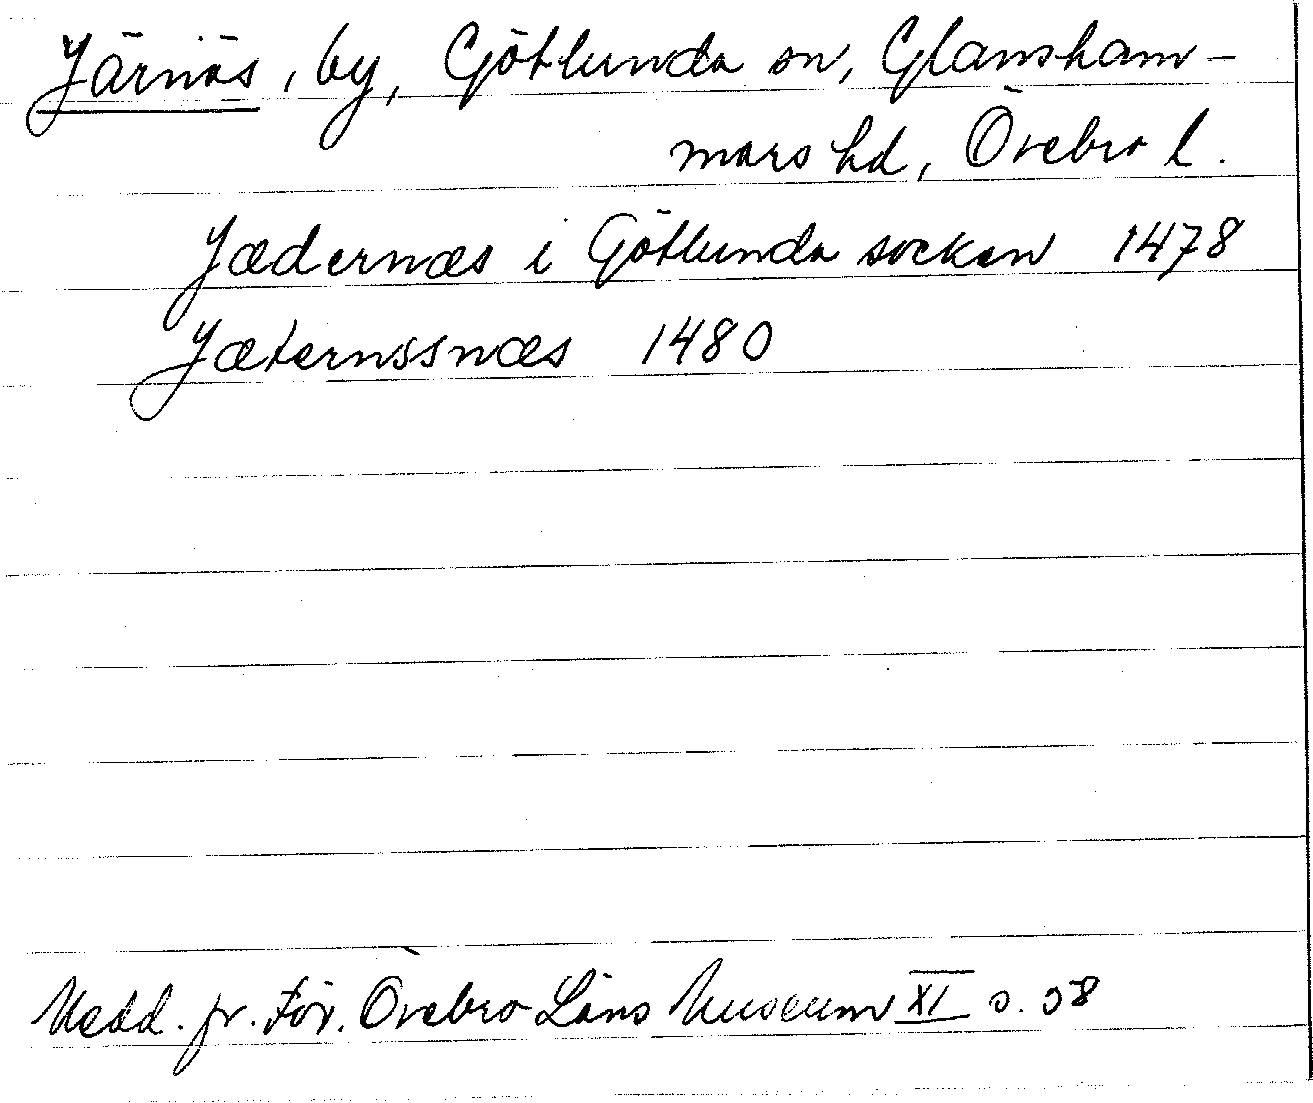 Järnäs, by, Götlunda sn, Glansham-
mars hd, Örebro l.
Jædernæs i Götlunda socken 1478
Jæternssnæs 1480
Medd. fr. För. Örebro Läns Museum XI s. 58